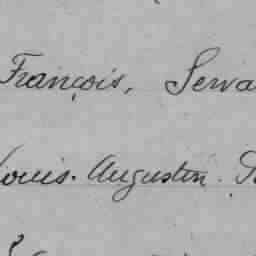 François, Serva
Louis. Augustin. S